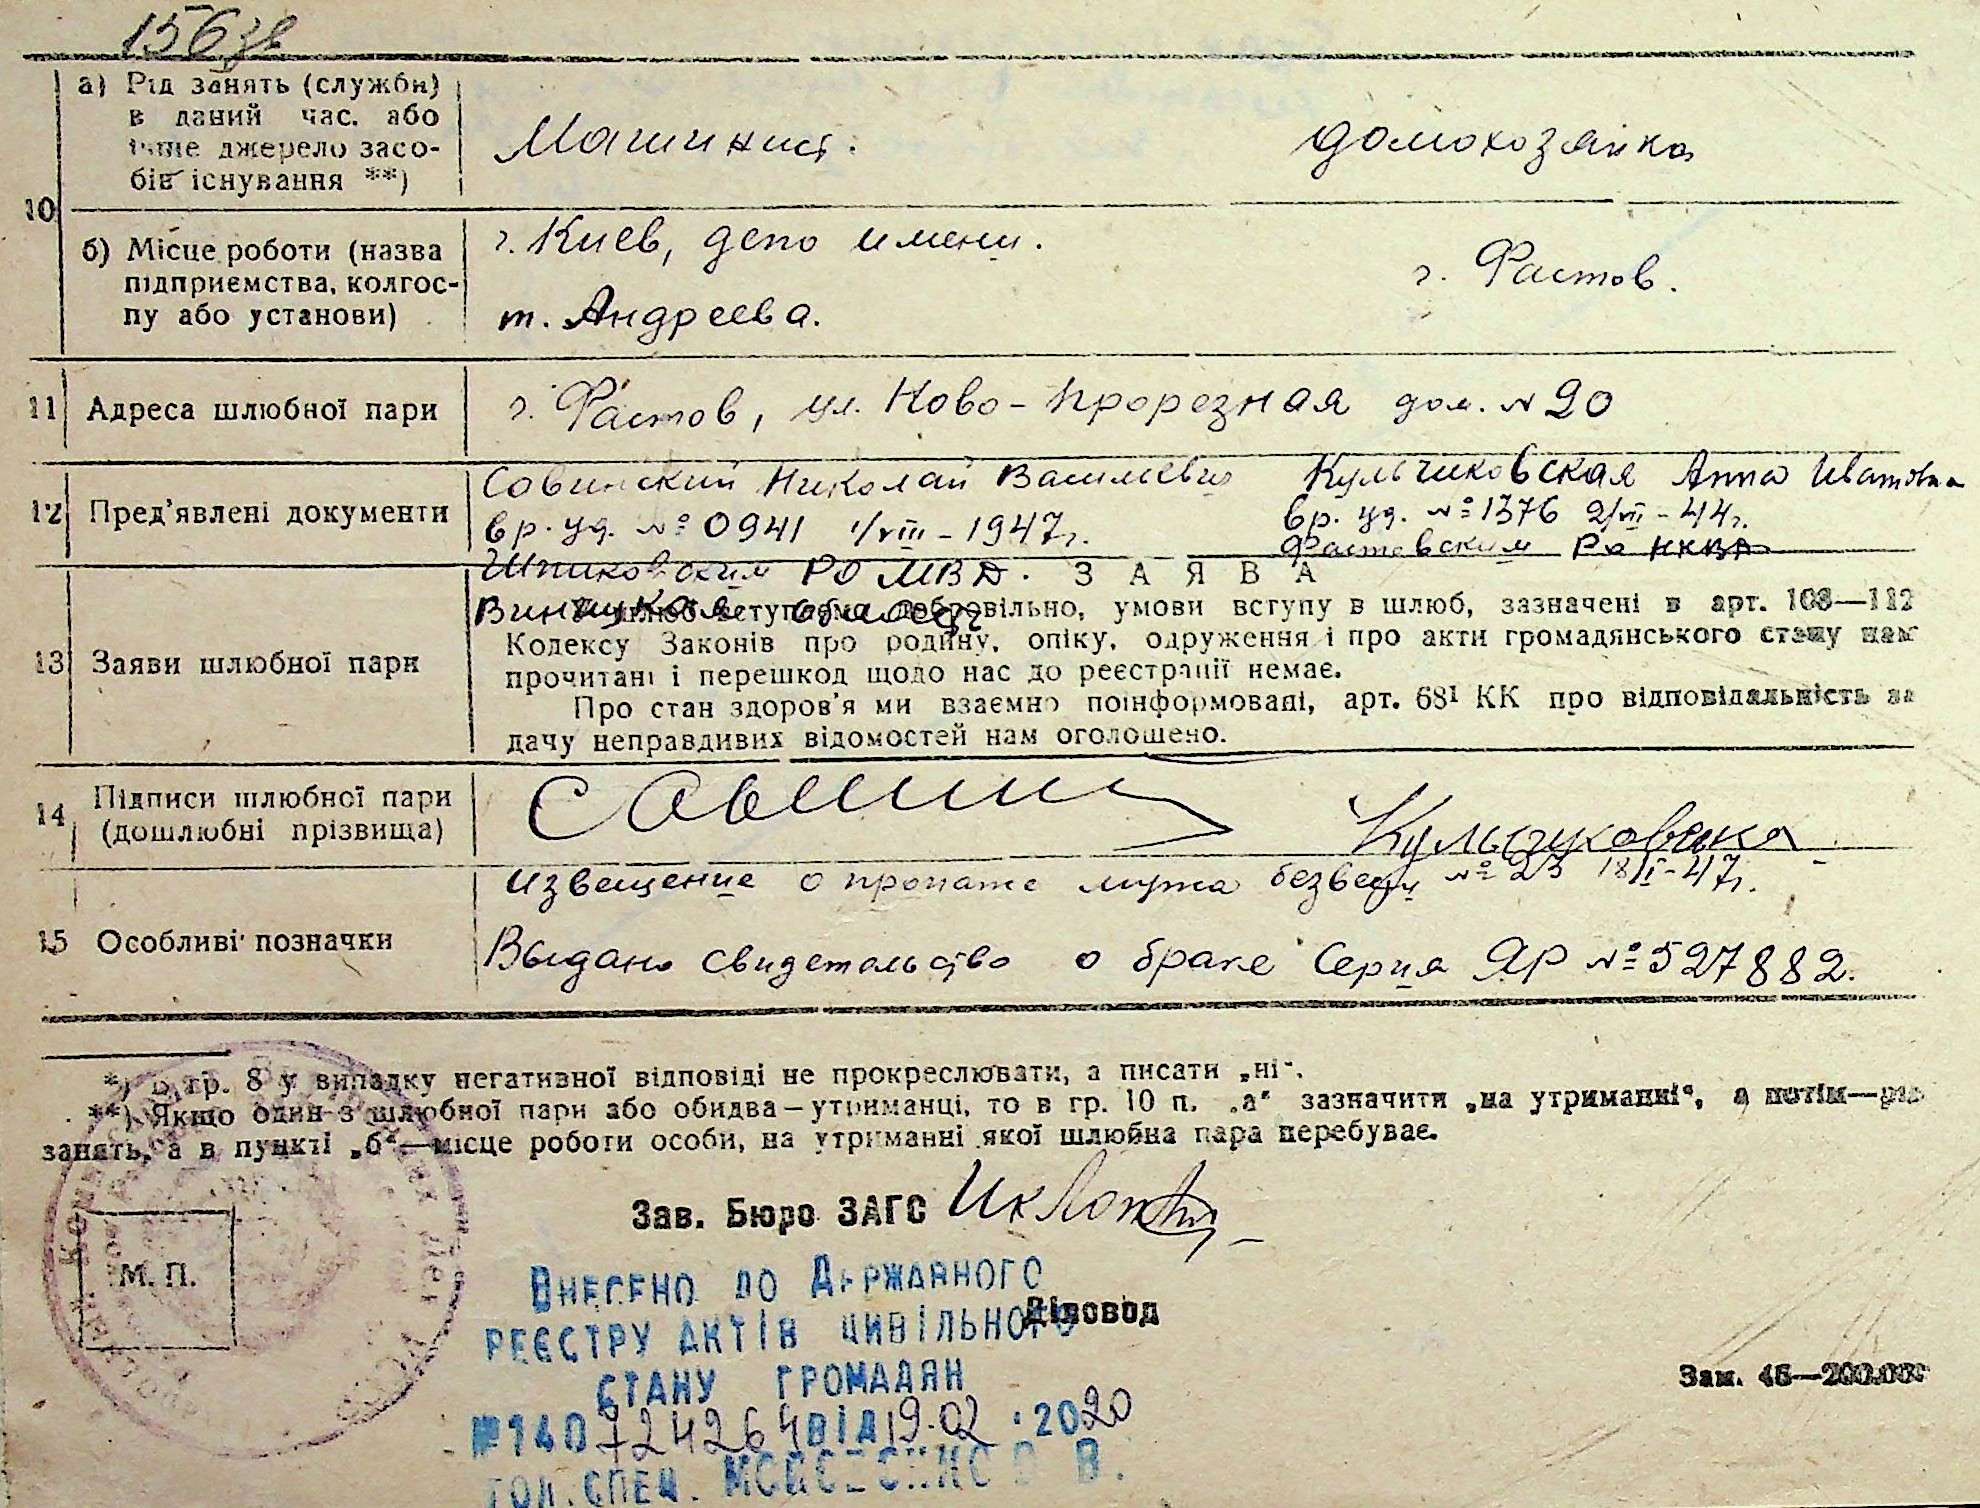 156зв
10
а) Рід занять (служби)
в даний час. або
інше джерело засо-
бів існування **)
Машинист.
домохозяйка
б) Місце роботи (назва
підприємства, колгос-
пу або установи)
г. Киев, депо имени.
т. Андреева.
г. Фастов.
11 Адреса шлюбної пари
г. Фастов, ул. Ново-Прорезная дом. № 20
12 Пред'явлені документи
Совинский Николай Васильевич
вр. уд. № 0941 1/VIII-1947г.
Шпиковским РО МВД.
Винницкая област
Кульчиковская Анна Ивановна
вр. уд. № 1376 2/VII-44г.
Фастовским Ро НКВД
13 Заяви шлюбної пари
З А Я В А
шлюб вступаємо добровільно, умови вступу в шлюб, зазначені в арт. 108—112
Кодексу Законів про родину, опіку, одруження і про акти громадянського стану нам
прочитані і перешкод щодо нас до реєстрації немає.
Про стан здоров'я ми взаємно поінформовані, арт. 68¹ КК про відповідальність за
дачу неправдивих відомостей нам оголошено.
14 Підписи шлюбної пари
(дошлюбні прізвища)
Кульчиковска
15 Особливі позначки
извещение о пропаже мужа безвести № 23 18/I-47г.
Выдано свидетельство о браке Серия ЯР № 527882.
*) В гр. 8 у випадку негативної відповіді не прокреслювати, а писати „ні“.
**) Якщо один з шлюбної пари або обидва—утриманці, то в гр. 10 п. „а“ зазначити „на утриманні“, а потім—рід
занять, а в пункті „б“—місце роботи особи, на утриманні якої шлюбна пара перебуває.
Зав. Бюро ЗАГС
М. П.
Діловод
Внесено до Державного
реєстру актів цивільного
стану громадян
№ 140724264 від 19.02.2020
гол. спец.
Зам. 45—200.000